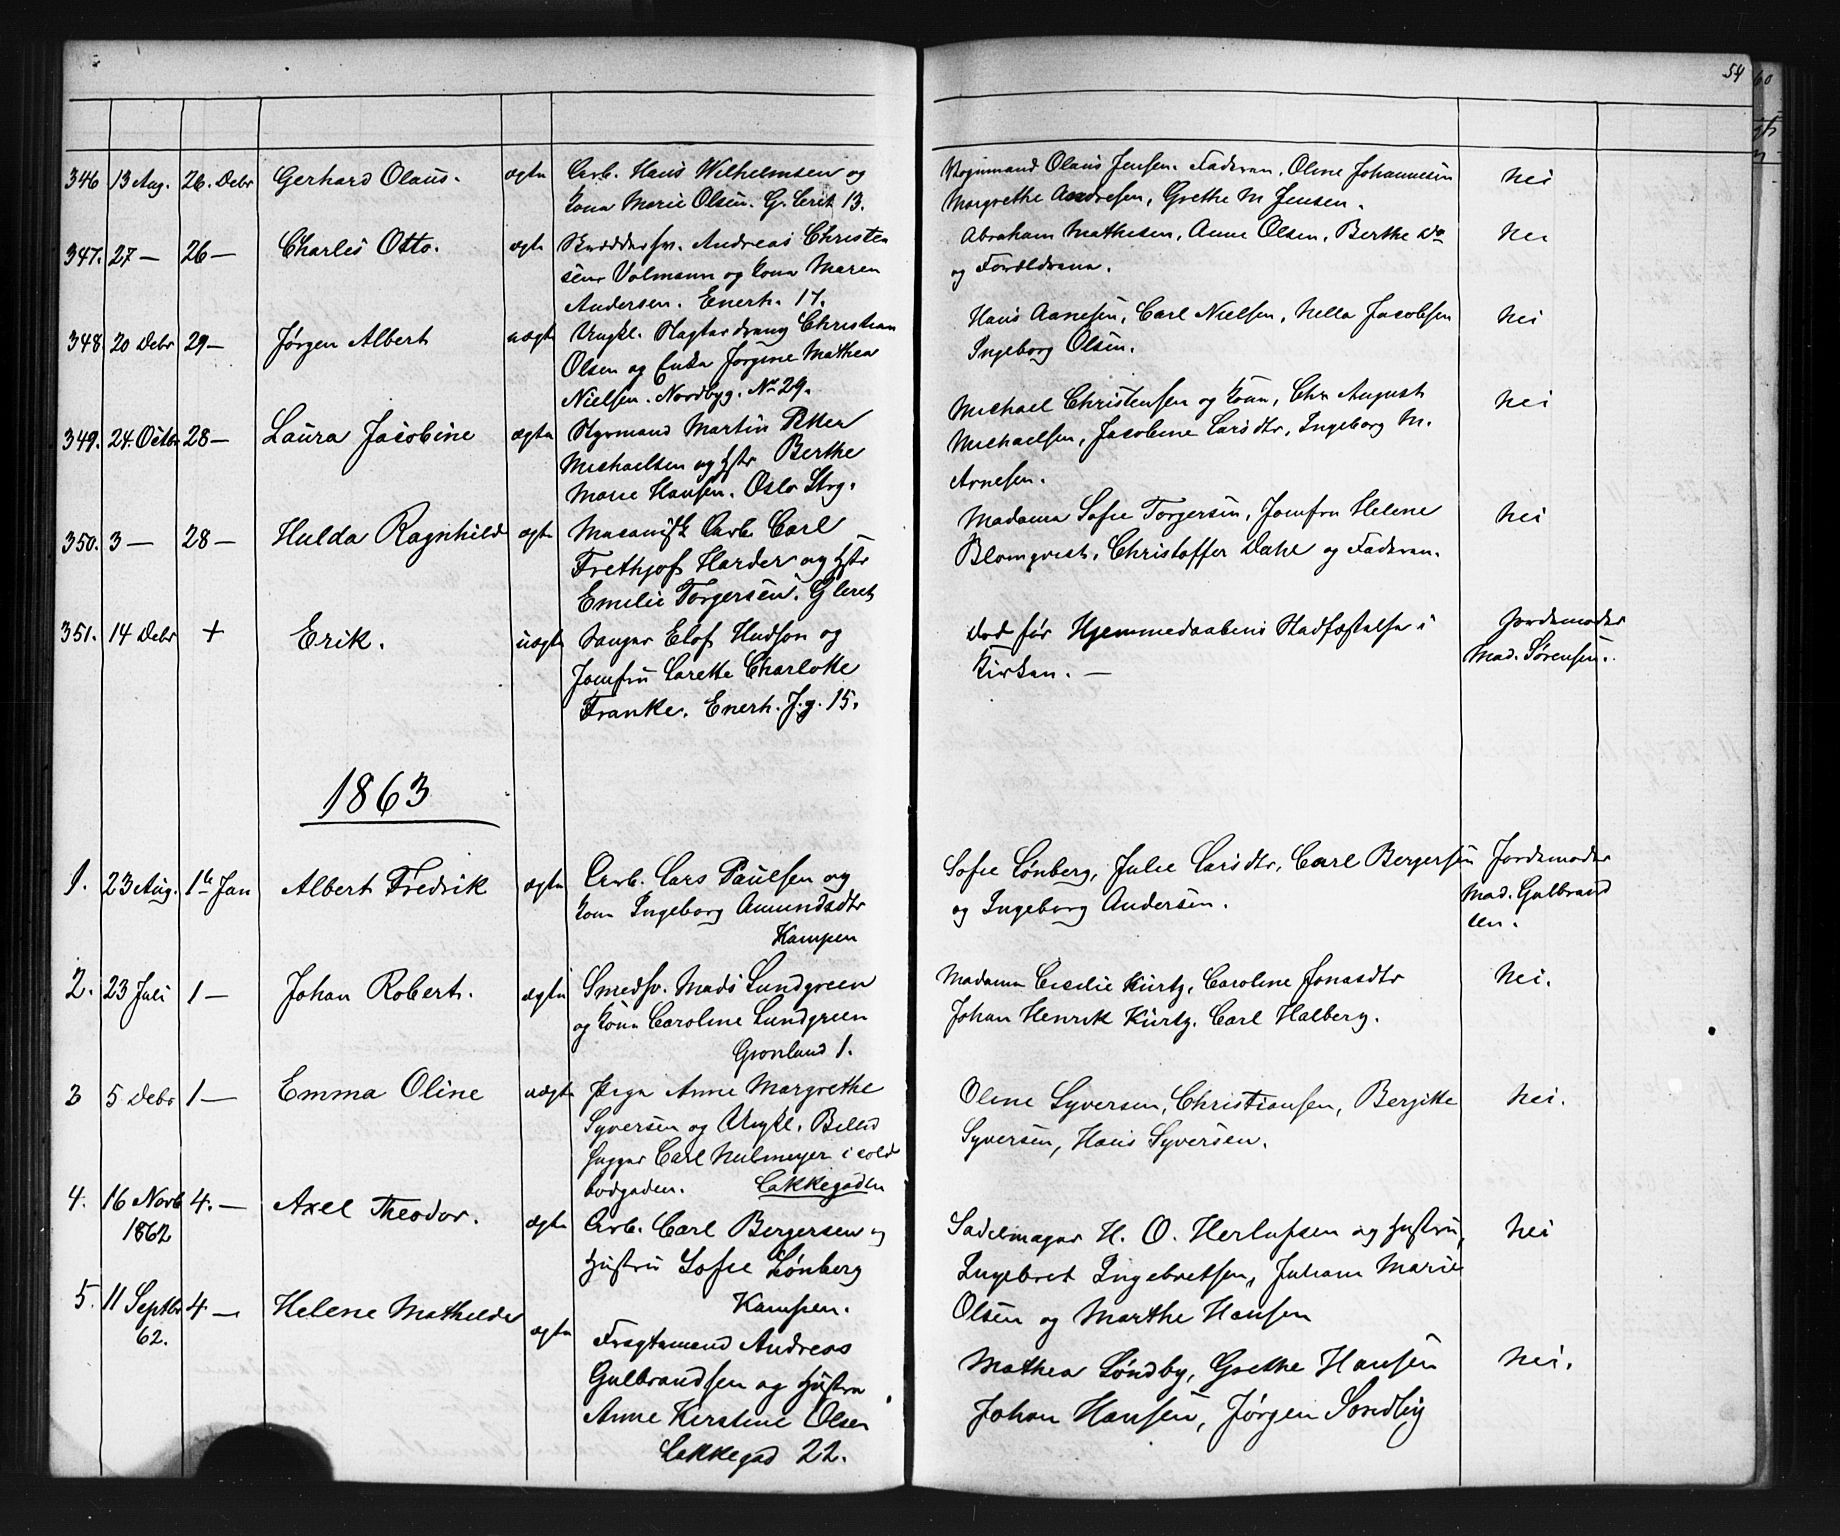 54 60
346 13 Aug. 26. Debr Gerhard Olaus. ægte Arb. Hans Wilhelmsen og
Kone Marie Olsen. G. Leret 13.
Vognmand Olaus Jensen. Faderen, Oline Johannesen
Margrethe Andresen, Grethe M Jensen.
Nei
347. 27 — 26 — Charles Otto. ægte Skræddersv. Andreas Christen
sens Volmann og Kone Maren
Andersen. Enerh. 17.
Abraham Mathesen, Anne Olsen, Berthe Do
og Forældrene.
Nei
348 20 Debr 29 — Jørgen Albert uægte Ungkl. Slagterdreng Christian
Olsen og Enke Jørgine Mathea
Nielsen. Nordbyg. No 29.
Hans Aanesen, Carl Nielsen, Nella Jacobsen
Ingeborg Olsen.
Nei
349. 24. Octbr 28 — Laura Jacobine ægte Styrmand Martin Petter
Michaelsen og Hstr Berthe
Marie Hansen. Oslo Strg.
Michael Christensen og Kone, Chr August
Michaelsen, Jacobine Larsdtr, Ingeborg M.
Arnesen.
Nei
350. 3 — 28 — Hulda Ragnhild ægte Mecanisk Arb. Carl
Frethjof Harder og Hstr
Emilie Torgersen. G leret
Madame Sofie Torgersen, Jomfru Helene
Blomqvist, Christoffer Dahl og Faderen.
Nei
351. 14 Debr + Erik. uægte Sanger Elof Hudson og
Jomfru Larette Charlotte
Franke. Enerh. J.g. 15.
død før Hjemmedaabens Stadfæstelse i
Kirken. —
Jordemoder
Mad. Sørensen.
1863
1. 23 Aug. 1te Jan Albert Fredrik ægte Arb. Lars Paulsen og
Kone Ingeborg Amundsdtr
Kampen
Sofie Lønberg, Julie Larsdtr, Carl Bergersen
og Ingeborg Andersen.
Jordemoder
Mad. Gulbrand
sen.
2. 23 Juli 1 — Johan Robert. ægte Smedsv. Mads Lundgreen
og Kone Caroline Lundgreen
Grønland 1.
Madame Cecilie Kurtz, Caroline Jonasdtr
Johan Henrik Kurtz. Carl Halberg.
Nei.
3 5 Debr 1 — Emma Oline uægte Pige Anne Margrethe
Syversen og Ungkl. Billed
hugger Carl Nulmeyer i Vold
bodgaden. Lakkegaden
Oline Syversen, Christiansen, Bergitte
Syversen, Hans Syversen.
Nei.
4. 16 Novb 4. — Axel Theodor. ægte Arb. Carl Bergersen og
1862
Hustru Sofie Lønberg
Kampen.
Sadelmager H. O. Herlufsen og Hustru,
Ingebret Ingebretsen, Johan Marie
Olsen og Marthe Hansen
Nei
5. 11 Septbr 4 — Helene Mathilde ægte Fragtemand Andreas
62.
Gulbrandsen og Hustru
Anne Kirstine Olsen
Lakkegad 22.
Mathea Søndby, Grethe Hansen
Johan Hansen, Jørgen Sondby
Nei.